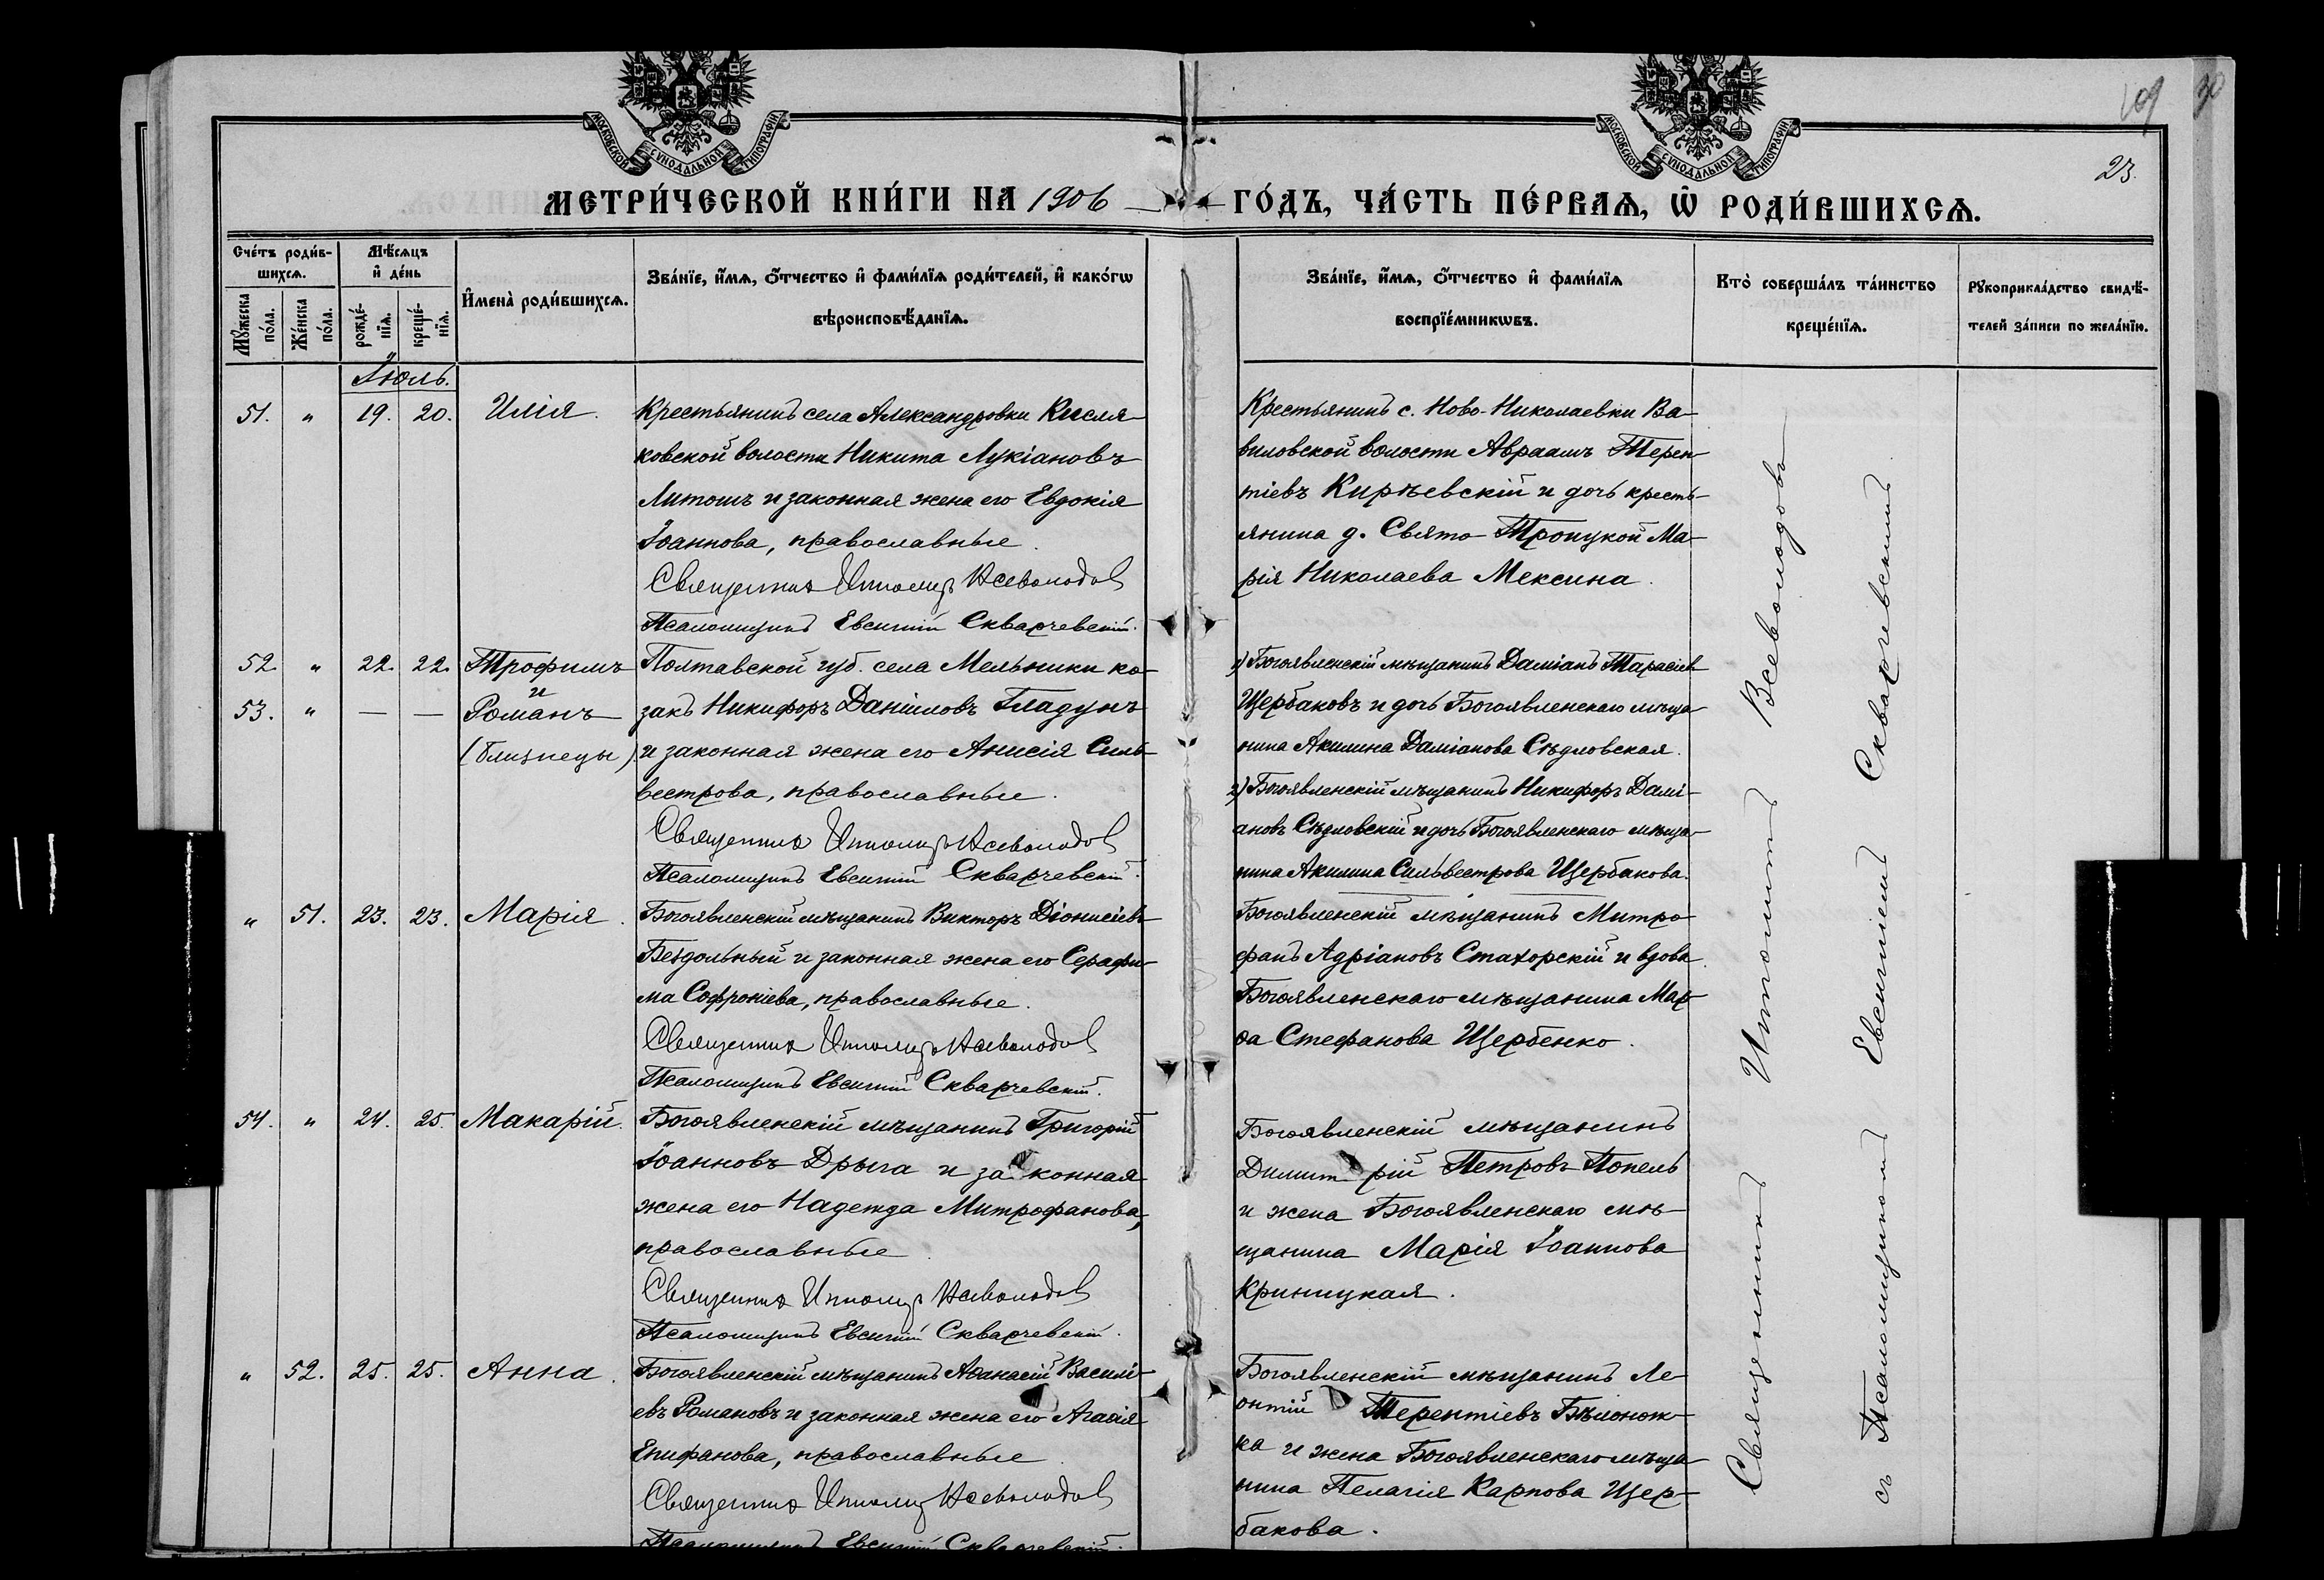 МОСКОВСКОЙ СѴНОДАЛЬНОЙ ТИПОГРАФІИ
МОСКОВСКОЙ СѴНОДАЛЬНОЙ ТИПОГРАФІИ
109
30
23.
МЕТРИ́ЧЕСКОЙ КНИ́ГИ НА 1906
ГО́ДЪ, ЧА́СТЬ ПЕ́РВАѦ, Ѡ҆ РОДИ́ВШИХСѦ.
Сче́тъ роди́в-
шихсѧ.
Мѣ́сѧцъ
и҆ де́нь
И҆мена̀ роди́вшихсѧ.
Зва́нїе, и҆́мѧ, ѻ҆́тчество и҆ фами́лїѧ роди́телей, и҆ како́гѡ
вѣроисповѣ́данїѧ.
Мꙋ́жеска
по́ла.
Же́нска
по́ла.
рожде́-
нїѧ.
креще́-
нїѧ.
Зва́нїе, и҆́мѧ, ѻ҆́тчество и҆ фами́лїѧ
воспрїе́мникѡвъ.
Кто̀ соверша́лъ та́инство
креще́нїѧ.
Рꙋкоприкла́дство свидѣ́-
телей за́писи по жела́нїю.
Іюль.
51. " 19. 20. Илія.
Крестьянинъ села Александровки Кисля-
ковской волости Никита Лукіановъ
Литошъ и законная жена его Евдокія
Іоаннова, православные.
Священникъ Ипполитъ Всеволодовъ
Псаломщикъ Евсигній Скварчевскій.
Крестьянинъ с. Ново-Николаевки Ва-
виловской волости Авраамъ Терен-
тіевъ Кирѣевскій и дочь кресть-
янина д. Свято-Троицкой Ма-
рія Николаева Мексина.
52. " 22. 22. Трофимъ
и
53. " — — Романъ
(близнецы).
Полтавской губ. села Мельники ко-
закъ Никифоръ Даніиловъ Гладунъ
и законная жена его Анисія Силь-
вестрова, православные.
Священникъ Ипполитъ Всеволодовъ
Псаломщикъ Евсигній Скварчевскій.
1) Богоявленскій мѣщанинъ Даміанъ Тарасіевъ
Щербаковъ и дочь Богоявленскаго мѣща-
нина Акилина Даміанова Сѣдловская.
2) Богоявленскій мѣщанинъ Никифоръ Дамі-
ановъ Сѣдловскій и дочь Богоявленскаго мѣща-
нина Акилина Сильвестрова Щербакова.
" 51. 23. 23. Марія.
Богоявленскій мѣщанинъ Викторъ Діонисіевъ
Бездольный и законная жена его Серафи-
ма Софроніева, православные.
Священникъ Ипполитъ Всеволодовъ
Псаломщикъ Евсигній Скварчевскій.
Богоявленскій мѣщанинъ Митро-
фанъ Адріановъ Стахорскій и вдова
Богоявленскаго мѣщанина Мар-
ѳа Стефанова Щербенко.
54. " 24. 25. Макарій.
Богоявленскій мѣщанинъ Григорій
Іоанновъ Дрыга и законная
жена его Надежда Митрофанова,
православные.
Священникъ Ипполитъ Всеволодовъ
Псаломщикъ Евсигній Скварчевскій.
Богоявленскій мѣщанинъ
Димитрій Петровъ Попель
и жена Богоявленскаго мѣ-
щанина Марія Іоаннова
Криницкая.
" 52. 25. 25. Анна.
Богоявленскій мѣщанинъ Аѳанасій Василі-
евъ Романовъ и законная жена его Агаѳія
Епифанова, православные.
Священникъ Ипполитъ Всеволодовъ
Псаломщикъ Евсигній Скварчевскій.
Богоявленскій мѣщанинъ Ле-
онтій Терентіевъ Бѣлонож-
ка и жена Богоявленскаго мѣща-
нина Пелагія Карпова Щер-
бакова.
Священникъ Ипполитъ Всеволодовъ
съ Псаломщикомъ Евсигніемъ Скварчевскимъ